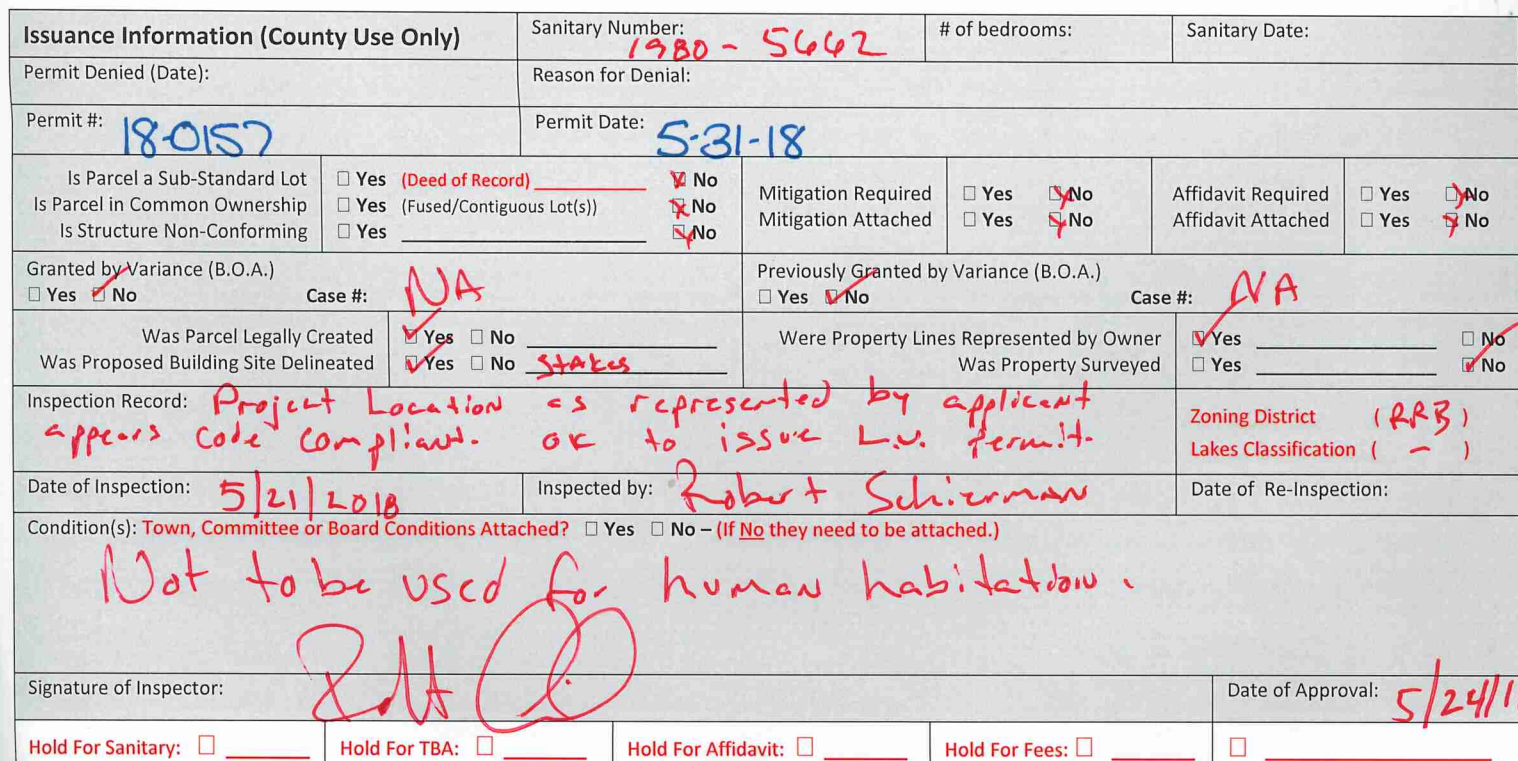 Issuance Information (County Use Only) Sanitary Number: 1980 - 5662 # of bedrooms: Sanitary Date:
Permit Denied (Date): Reason for Denial:
Permit #: 18-0157 Permit Date: 5-31-18
Is Parcel a Sub-Standard Lot □ Yes (Deed of Record) ________ ☒ No
Is Parcel in Common Ownership □ Yes (Fused/Contiguous Lot(s)) ☒ No
Is Structure Non-Conforming □ Yes ________ ☒ No
Mitigation Required □ Yes ☒ No
Mitigation Attached □ Yes ☒ No
Affidavit Required □ Yes ☒ No
Affidavit Attached □ Yes ☒ No
Granted by Variance (B.O.A.)
□ Yes ☑ No Case #: NA
Previously Granted by Variance (B.O.A.)
□ Yes ☑ No Case #: NA
Was Parcel Legally Created ☑ Yes □ No ________
Was Proposed Building Site Delineated ☑ Yes □ No Stakes
Were Property Lines Represented by Owner ☑ Yes ________ □ No
Was Property Surveyed □ Yes ________ ☑ No
Inspection Record: Project Location as represented by applicant
appears code compliant. ok to issue L.U. permit.
Zoning District (RRB)
Lakes Classification ( - )
Date of Inspection: 5/21/2018 Inspected by: Robert Schierman Date of Re-Inspection:
Condition(s): Town, Committee or Board Conditions Attached? □ Yes □ No – (If No they need to be attached.)
Not to be used for human habitation.
Signature of Inspector: Date of Approval: 5/24/1
Hold For Sanitary: □ ________ Hold For TBA: □ ________ Hold For Affidavit: □ ________ Hold For Fees: □ ________ □ ________